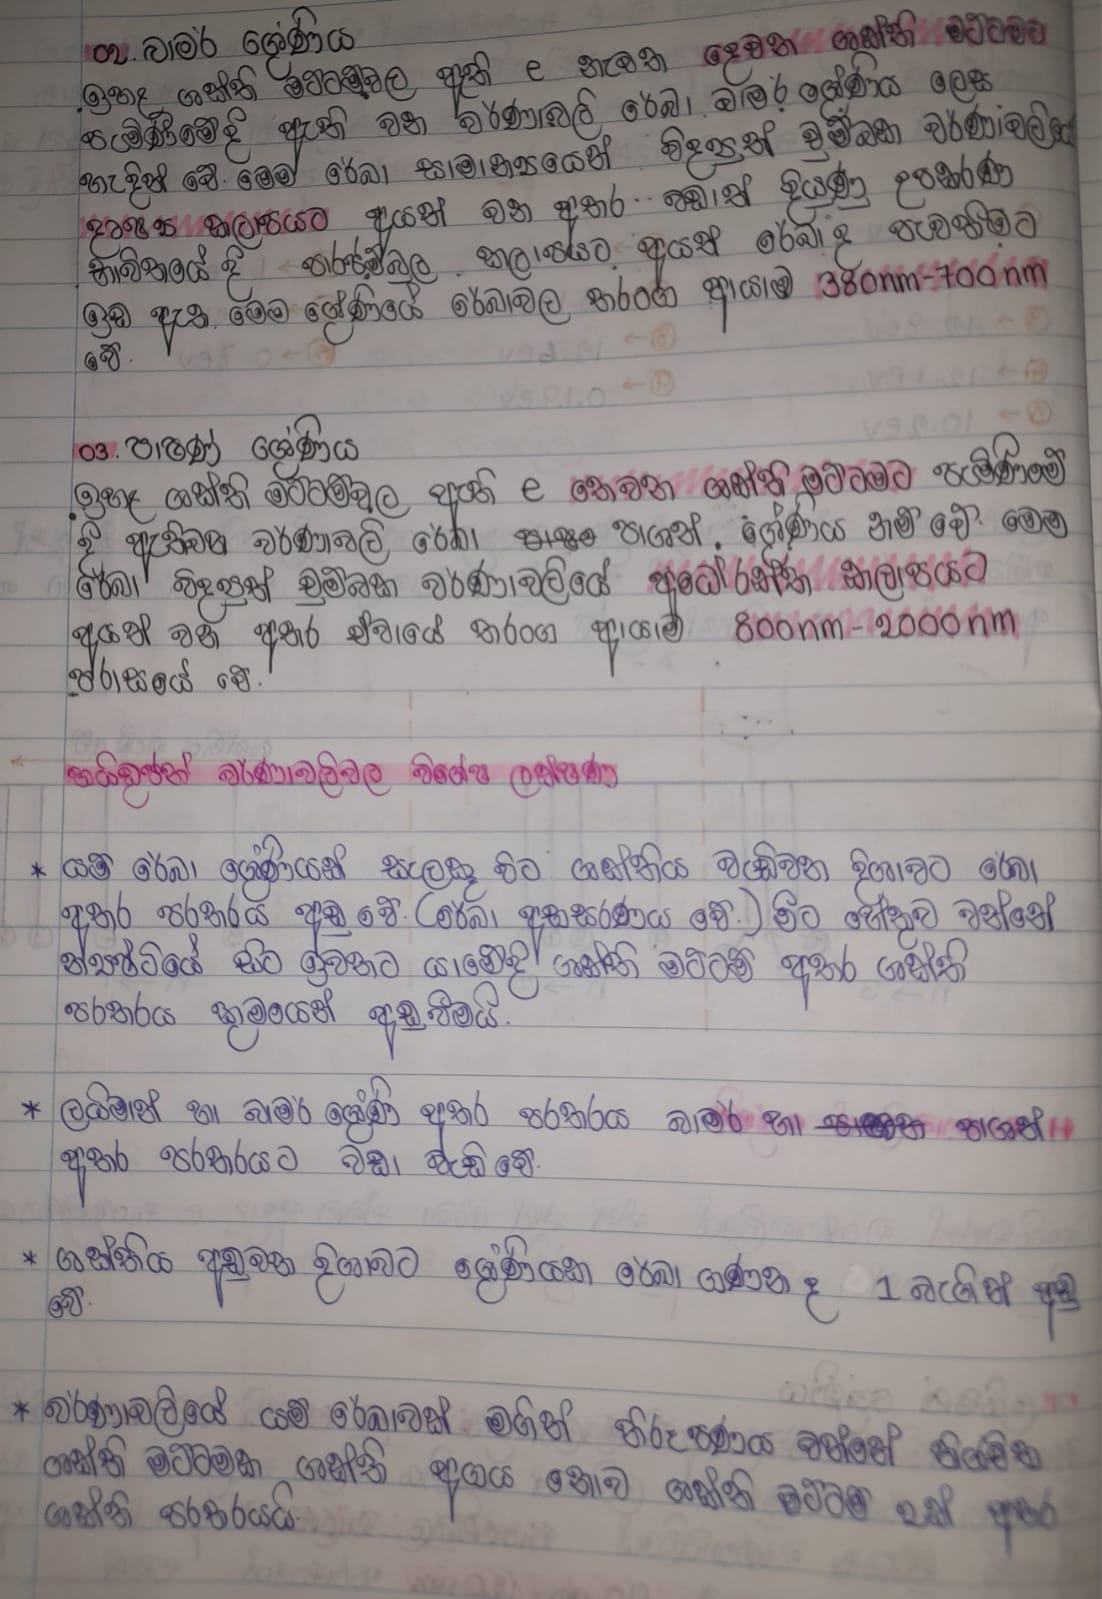 02. බාමර් ශ්‍රේණිය
ඉහළ ශක්ති මට්ටම්වල ඇති e නැවත දෙවන ශක්ති මට්ටමට
පැමිණීමේදී ඇති වන වර්ණාවලි රේඛා බාමර් ශ්‍රේණිය ලෙස
හැඳින් වේ. මෙම රේඛා සාමාන්‍යයෙන් විද්‍යුත් චුම්බක වර්ණාවලියේ
දෘශ්‍ය කලාපයට අයත් වන අතර වඩාත් දියුණු උපකරණ
භාවිතයේ දී පාරජම්බුල කලාපයට අයත් රේඛා ද පැවතීමට
ඉඩ ඇත. මෙම ශ්‍රේණියේ රේඛාවල තරංග ආයාම 380nm-700nm
වේ.
03. පාෂණ් ශ්‍රේණිය
ඉහළ ශක්ති මට්ටම්වල ඇති e තෙවන ශක්ති මට්ටමට පැමිණීමේ
දී ඇතිවන වර්ණාවලි රේඛා පාශන් ශ්‍රේණිය නම් වේ. මෙම
රේඛා විද්‍යුත් චුම්බක වර්ණාවලියේ අධෝරක්ත කලාපයට
අයත් වන අතර ඒවායේ තරංග ආයාම 800nm-2000nm
පරාසයේ වේ.
හයිඩ්‍රජන් වර්ණාවලිවල විශේෂ ලක්ෂණ
* යම් රේඛා ශ්‍රේණියක් සැලකූ විට ශක්තිය වැඩිවන දිශාවට රේඛා
අතර පරතරය අඩු වේ. (රේඛා අභිසරණය වේ.) මීට හේතුව වන්නේ
න්‍යෂ්ටියේ සිට ඉවතට යාමේදී ශක්ති මට්ටම් අතර ශක්ති
පරතරය ක්‍රමයෙන් අඩුවීමයි.
* ලයිමාන් හා බාමර් ශ්‍රේණි අතර පරතරය බාමර් හා පාශන්
අතර පරතරයට වඩා වැඩි වේ.
* ශක්තිය අඩුවන දිශාවට ශ්‍රේණියක රේඛා ගණන ද 1 බැගින් අඩු
වේ.
* වර්ණාවලියේ යම් රේඛාවක් මගින් නිරූපණය වන්නේ නියමිත
ශක්ති මට්ටමක ශක්ති අගය නොව ශක්ති මට්ටම් 2ක් අතර
ශක්ති පරතරයයි.